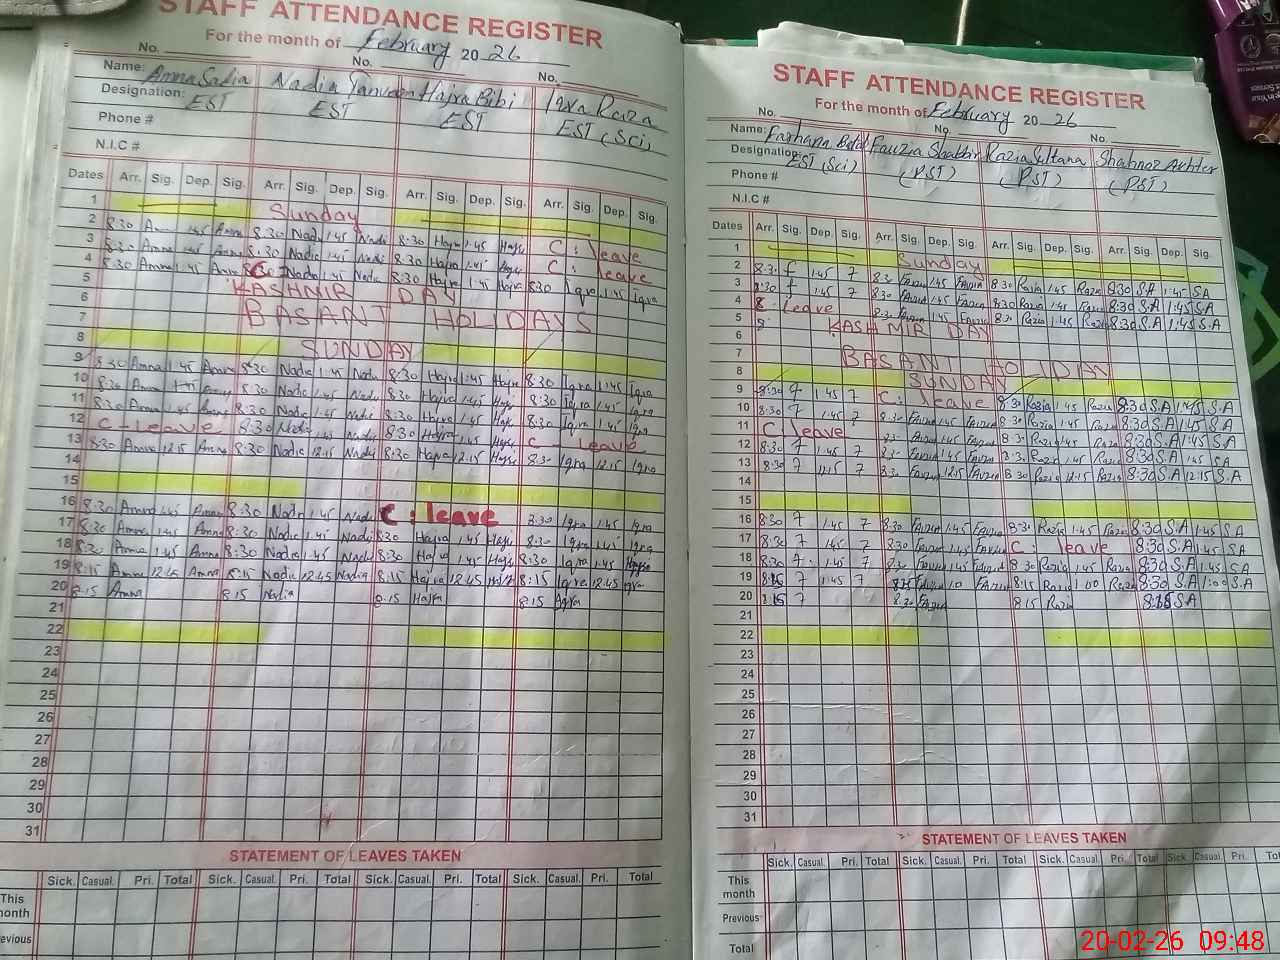 STAFF ATTENDANCE REGISTER
For the month of February 20 26
No. No. No.
Name: Amna Sadia Nadia Tanveer Hajra Bibi Iqra Raza
Designation: EST EST EST EST (Sci)
Phone #
N.I.C #
Dates Arr. Sig. Dep. Sig. Arr. Sig. Dep. Sig. Arr. Sig. Dep. Sig. Arr. Sig. Dep. Sig.
1 Sunday
2 8:30 Amna 1:45 Amna 8:30 Nadi 1:45 Nadi 8:30 Hajra 1:45 Hajra C: leave
3 8:30 Amna 1:45 Amna 8:30 Nadia 1:45 Nadi 8:30 Hajra 1:45 Hajra C: leave
4 8:30 Amna 1:45 Amna Nadia 1:45 Nadi 8:30 Hajra 1:45 Hajra 8:30 Iqra 1:45 Iqra
5 KASHMIR DAY
6 BASANT HOLIDAYS
7
8 SUNDAY
9 8:30 Amna 1:45 Amna 8:30 Nadia 1:45 Nadi 8:30 Hajra 1:45 Hajra 8:30 Iqra 1:45 Iqra
10 8:30 Amna 1:45 Amna 8:30 Nadia 1:45 Nadi 8:30 Hajra 1:45 Hajra 8:30 Iqra 1:45 Iqra
11 8:30 Amna 1:45 Amna 8:30 Nadia 1:45 Nadi 8:30 Hajra 1:45 Hajra 8:30 Iqra 1:45 Iqra
12 C-leave 8:30 Nadia 1:45 Nadi 8:30 Hajra 1:45 Hajra C- leave
13 8:30 Amna 12:15 Amna 8:30 Nadia 12:15 Nadi 8:30 Hajra 12:15 Hajra 8:30 Iqra 12:15 Iqra
14
15
16 8:30 Amna 1:45 Amna 8:30 Nadi 1:45 Nadi C: leave 8:30 Iqra 1:45 Iqra
17 8:30 Amna 1:45 Amna 8:30 Nadia 1:45 Nadi 8:30 Hajra 1:45 Hajra 8:30 Iqra 1:45 Iqra
18 8:30 Amna 1:45 Amna 8:30 Nadia 1:45 Nadi 8:30 Hajra 1:45 Hajra 8:30 Iqra 1:45
19 8:15 Amna 12:45 Amna 8:15 Nadia 12:45 Nadia 8:15 Hajra 12:45 Hajra 8:15 Iqra 12:45 Iqra
20 8:15 Amna 8:15 Nadia 8:15 Hajra 8:15 Iqra
21
22
23
24
25
26
27
28
29
30
31
STATEMENT OF LEAVES TAKEN
Sick. Casual. Pri. Total Sick. Casual. Pri. Total Sick. Casual. Pri. Total Sick. Casual. Pri. Total
This month
Previous
STAFF ATTENDANCE REGISTER
For the month of February 20 26
No. No. No.
Name: Farhana Fauzia Shabbir Razia Sultana Shabnaz Akhter
Designation: EST (Sci) (PST) (PST) (PST)
Phone #
N.I.C #
Dates Arr. Sig. Dep. Sig. Arr. Sig. Dep. Sig. Arr. Sig. Dep. Sig. Arr. Sig. Dep. Sig.
1 Sunday
2 8:30 f 1:45 7 8:30 Fauzia 1:45 Fauzia 8:30 Razia 1:45 Razia 8:30 S.A 1:45 SA
3 8:30 f 1:45 7 8:30 Fauzia 1:45 Fauzia 8:30 Razia 1:45 Razia 8:30 S.A 1:45 S.A
4 C-leave 8:30 Fauzia 1:45 Fauzia 8:30 Razia 1:45 Razia 8:30 S.A 1:45 S.A
5 KASHMIR DAY
6
7 BASANT HOLIDAY
8 SUNDAY
9 8:30 7 1:45 7 C: leave 8:30 Razia 1:45 Razia 8:30 S.A 1:45 S.A
10 8:30 7 1:45 7 8:30 Fauzia 1:45 Fauzia 8:30 Razia 1:45 Razia 8:30 S.A 1:45 S.A
11 C-leave 8:30 Fauzia 1:45 Fauzia 8:30 Razia 1:45 Razia 8:30 S.A 1:45 S.A
12 8:30 7 1:45 7 8:30 Fauzia 1:45 Fauzia 8:30 Razia 1:45 Razia 8:30 S.A 1:45 SA
13 8:30 7 12:15 7 8:30 Fauzia 12:15 Fauzia 8:30 Razia 12:15 Razia 8:30 S.A 12:15 S.A
14
15
16 8:30 7 1:45 7 8:30 Fauzia 1:45 Fauzia 8:30 Razia 1:45 Razia 8:30 S.A 1:45 S.A
17 8:30 7 1:45 7 8:30 Fauzia 1:45 Fauzia C: leave 8:30 S.A 1:45 SA
18 8:30 7 1:45 7 8:30 Fauzia 1:45 Fauzia 8:30 Razia 1:45 Razia 8:30 S.A 1:45 S.A
19 8:15 7 1:45 7 8:15 Fauzia 1:0 Fauzia 8:15 Razia 1:00 Razia 8:30 S.A 1:00 S.A
20 8:15 7 8:30 Fauzia 8:15 Razia 8:15 SA
21
22
23
24
25
26
27
28
29
30
31
STATEMENT OF LEAVES TAKEN
Sick. Casual. Pri. Total Sick. Casual. Pri. Total Sick. Casual. Pri. Total Sick. Casual. Pri.
This month
Previous
Total
20-02-26 09:48